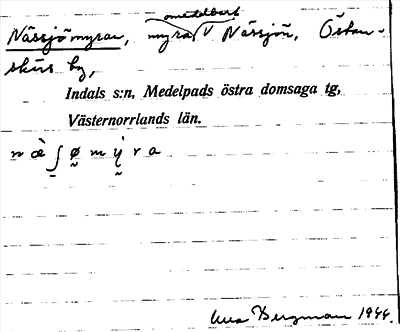 Nässjömyran, myra omedelbart V Nässjön, Östan-
skärs by,
Indals s:n, Medelpads östra domsaga tg,
Västernorrlands län.
n æ̀ ʃ ø m ý r a
Bergman 1944.